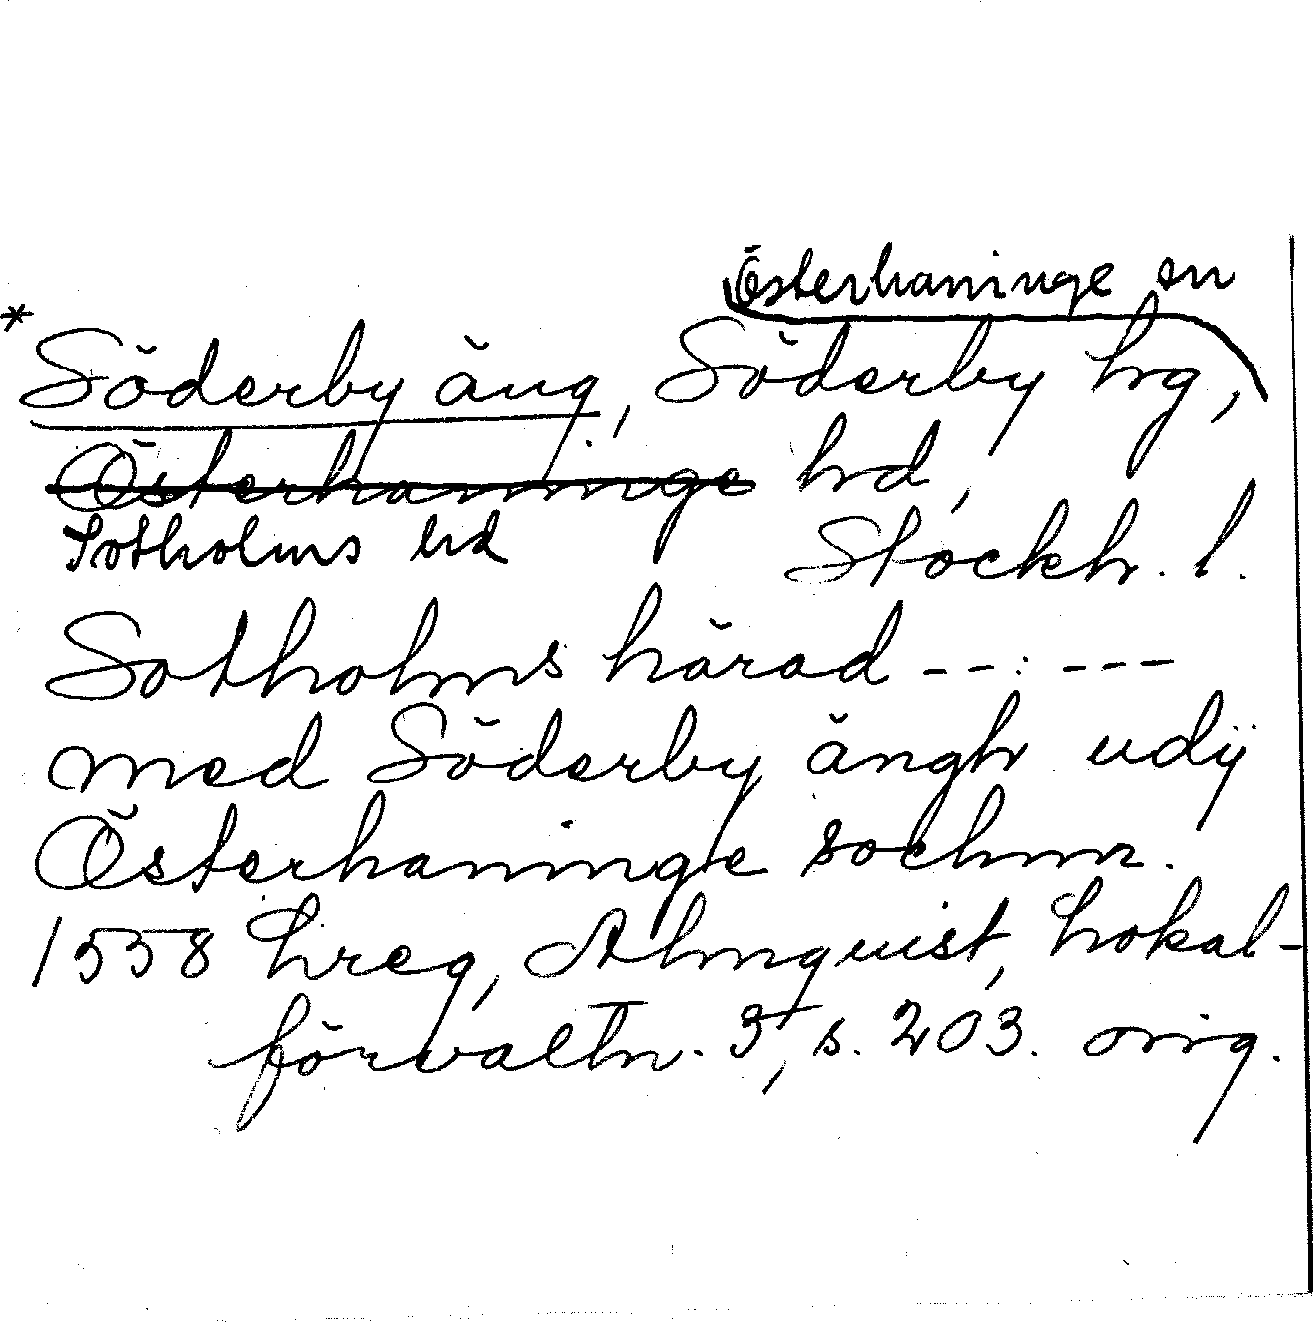 Österhaninge sn
* Söderby äng, Söderby hg,
Österhaninge hd,
Sotholms hd Stockh. l.
Sotholms härad -- : ---
med Söderby ängh udÿ
Österhaninge sochnn.
1558 hreg, Almquist, Lokal-
förvaltn. 3, s. 203. orig.